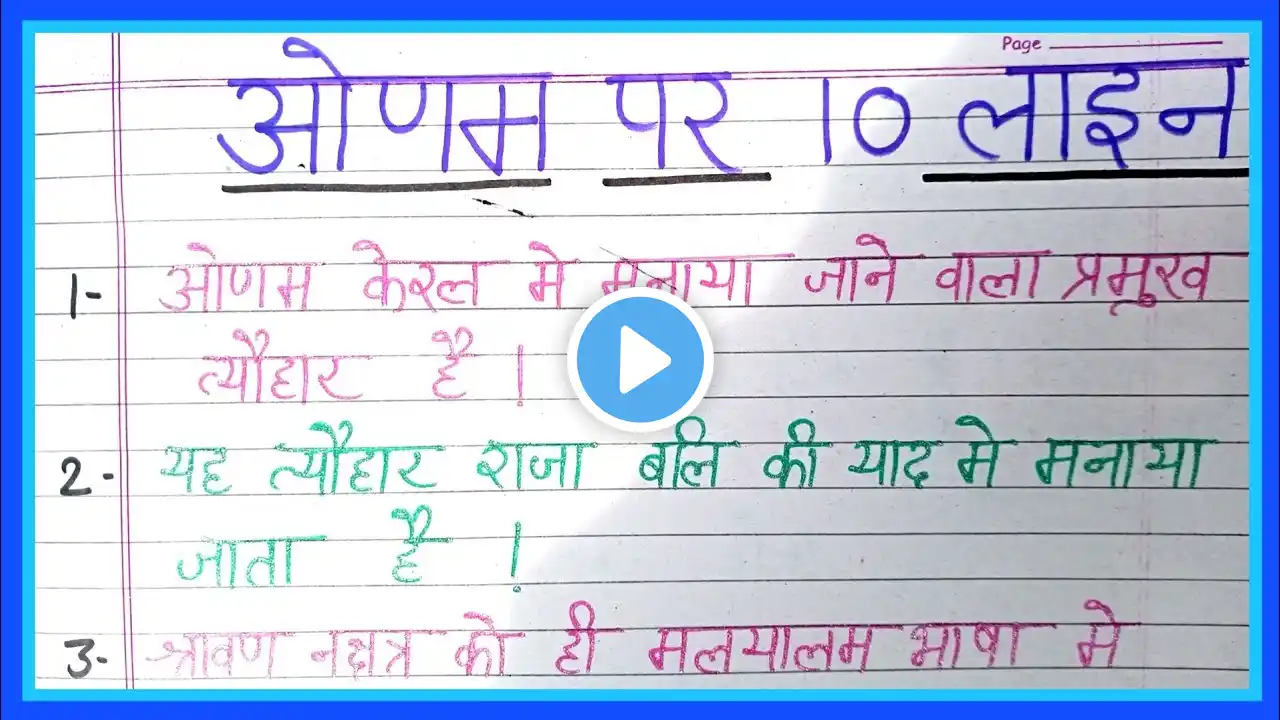 Page
ओणम पर 10 लाइन
1- ओणम केरल मे मनाया जाने वाला प्रमुख
त्यौहार है !
2- यह त्यौहार राजा बलि की याद मे मनाया
जाता है !
3- श्रावण नक्षत्र को ही मलयालम भाषा मे